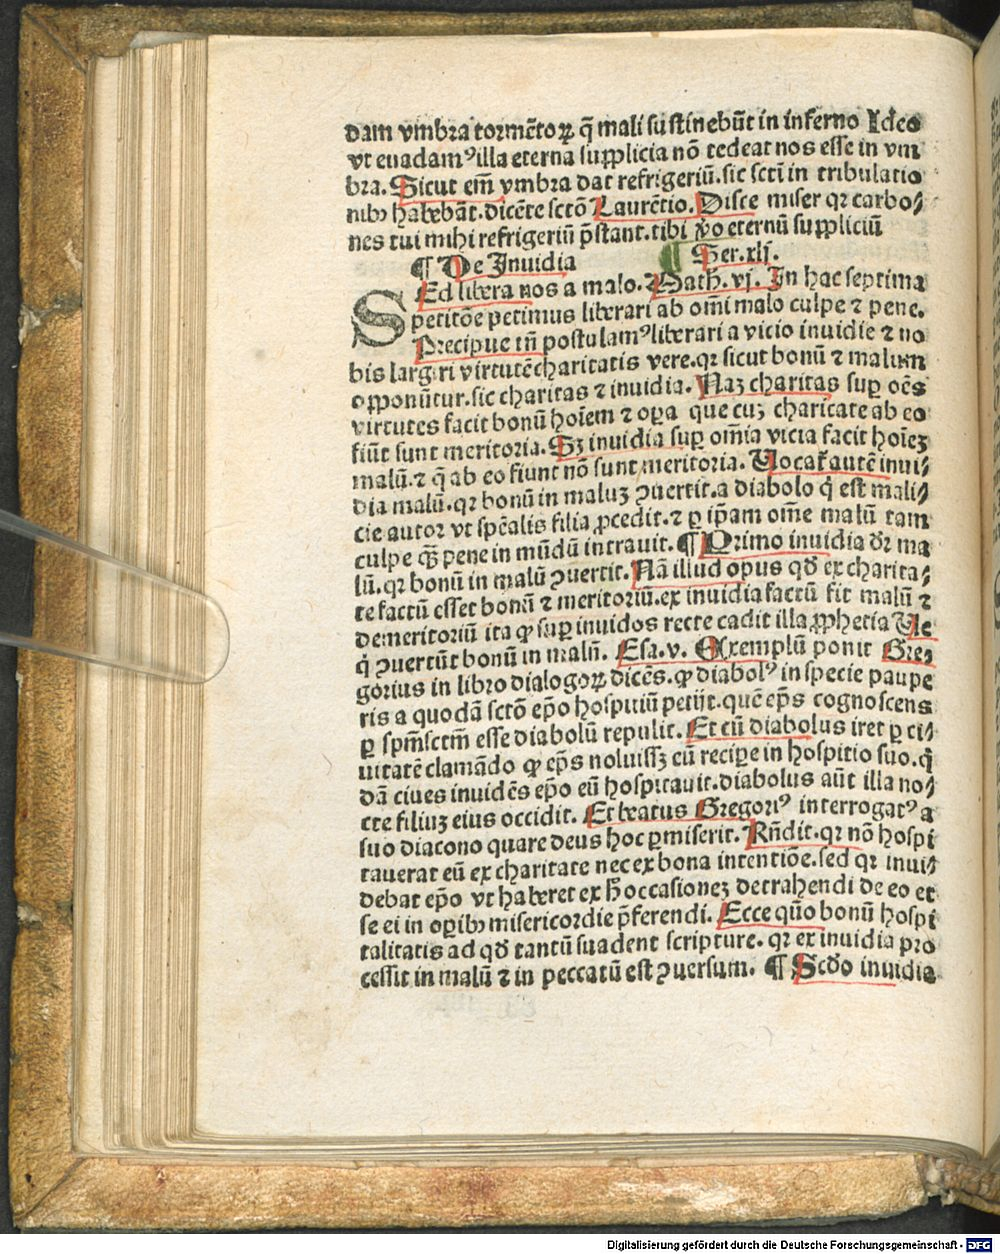 dam vmbra tormẽtoꝝ q̃ mali sustinebũt in inferno Ideo
vt euadamꝰ illa eterna supplicia nõ tedeat nos esse in vm
bra. Sicut em̃ vmbra dat refrigeriũ. sic sctĩ in tribulatio
nibꝰ habebãt. dicẽte sctõ Laurẽtio. Disce miser qꝛ carbo⸗
nes tui mihi refrigeriũ p̃stant. tibi ṽo eternũ suppliciũ
¶ De Inuidia ¶ Ser. xlj.
SEd libera nos a malo. Math. vj. In hac septima
petitõe petimus liberari ab omĩ malo culpe ⁊ pene.
Precipue tñ postulamꝰ liberari a vicio inuidie ⁊ no
bis largiri virtutẽ charitatis vere. qꝛ sicut bonũ ⁊ malum
opponũtur. sic charitas ⁊ inuidia. Naꝫ charitas suꝑ oẽs
virtutes facit bonũ hoĩem ⁊ oꝑa que cuꝫ charitate ab eo
fiũt sunt meritoria. Sꝫ inuidia suꝑ omĩa vicia facit hoĩeꝫ
malũ. ⁊ q̃ ab eo fiunt nõ sunt meritoria. Uocat̃ autẽ inui⸗
dia malũ. qꝛ bonũ in maluꝫ ꝯuertit. a diabolo q̇ est mali⸗
cie autor vt spẽalis filia ꝓcedit. ⁊ ꝑ ip̃am om̃e malũ tam
culpe qꝫ̃ pene in mũdũ intrauit. ¶ Primo inuidia dꝛ̃ ma
lũ. qꝛ bonũ in malũ ꝯuertit. Nã illud opus qđ ex charita⸗
te factũ esset bonũ ⁊ meritoriũ. ex inuidia factũ fit malũ ⁊
demeritoriũ ita ꝙ suꝑ inuidos recte cadit illa ꝓphetia Ue
q̇ ꝯuertũt bonũ in malũ. Esa. v. Exemplũ ponit Gre⸗
gorius in libro dialogoꝝ dicẽs. ꝙ diabolꝰ in specie paupe
ris a quodã sctõ ep̃o hospitiũ petijt. quẽ ep̃s cognoscens
ꝑ spm̃sctm̃ esse diabolũ repulit. Et cũ diabolus iret ꝑ ci⸗
uitatẽ clamãdo ꝙ ep̃s noluissꝫ eũ recipe in hospitio suo. q̇
dã ciues inuidẽs ep̃o eũ hospitauit. diabolus aũt illa no⸗
cte filiuꝫ eius occidit. Et beatus Gregoriꝰ interrogatꝰ a
suo diacono quare deus hoc ꝑmiserit. Rñdit. qꝛ nõ hospi
tauerat eũ ex charitate nec ex bona intentiõe. sed qꝛ inui⸗
debat ep̃o vt haberet ex h̃ occasioneꝫ detrahendi de eo et
se ei in oꝑibꝰ misericordie p̃ferendi. Ecce quõ bonũ hospi
talitatis ad qđ tantũ suadent scripture. qꝛ ex inuidia pro
cessit in malũ ⁊ in peccatũ est ꝯuersum. ¶ Scđo inuidia
Digitalisierung gefördert durch die Deutsche Forschungsgemeinschaft - DFG